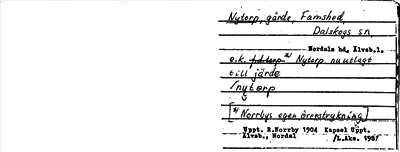 Nytorp, gärde, Famshed,
Dalskogs sn,
Nordals hd, Älvsb.l.
e.k. f.d. torp x) Nytorp nu utlagt
till järde
/nytorp
[x) Norrbys egen överstrykning]
Uppt. R.Norrby 1904 Kapsel Uppt.
Älvsb., Nordal /L.Åke. 1961